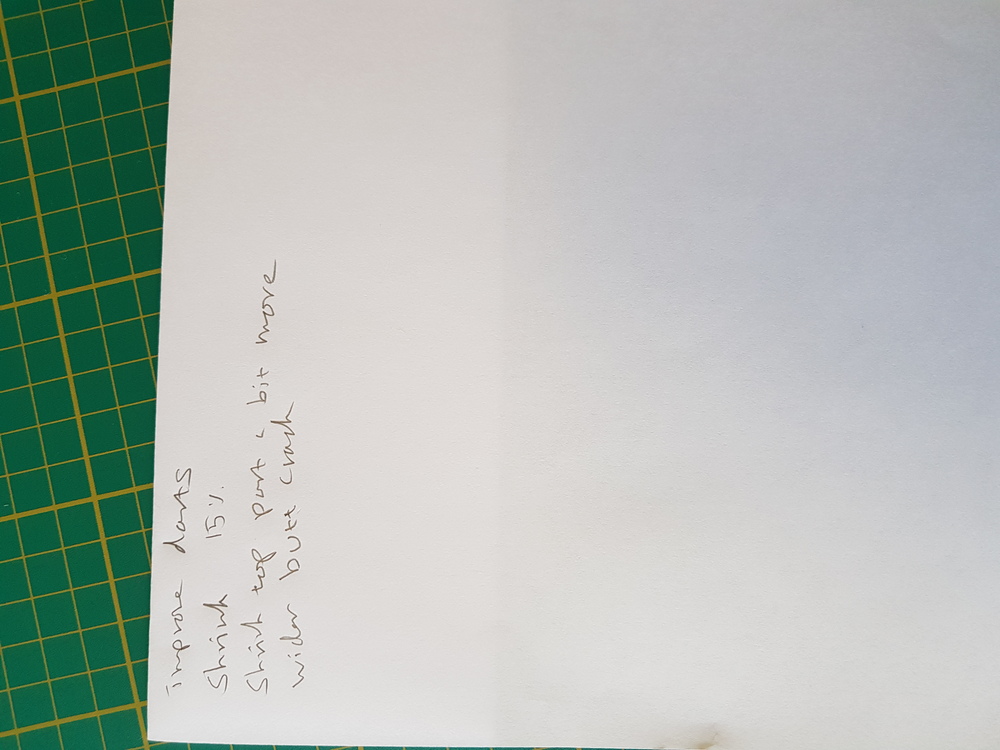 improve darts
Shrink 15%.
Shrink top part a bit more
wider butt crack